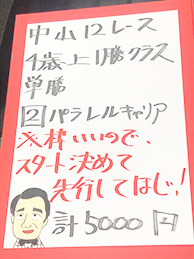 中山12レース
4歳上1勝クラス
単勝
2 パラレルキャリア
※枠いいので、
スタート決めて
先行してほしい!
計5000円